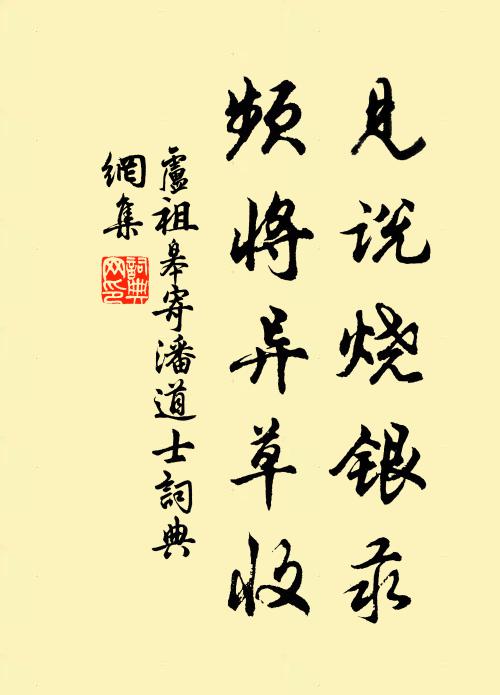 见说烧銀汞
频将异草收
盧祖皋寄潘道士詞典
網集
詞典網印